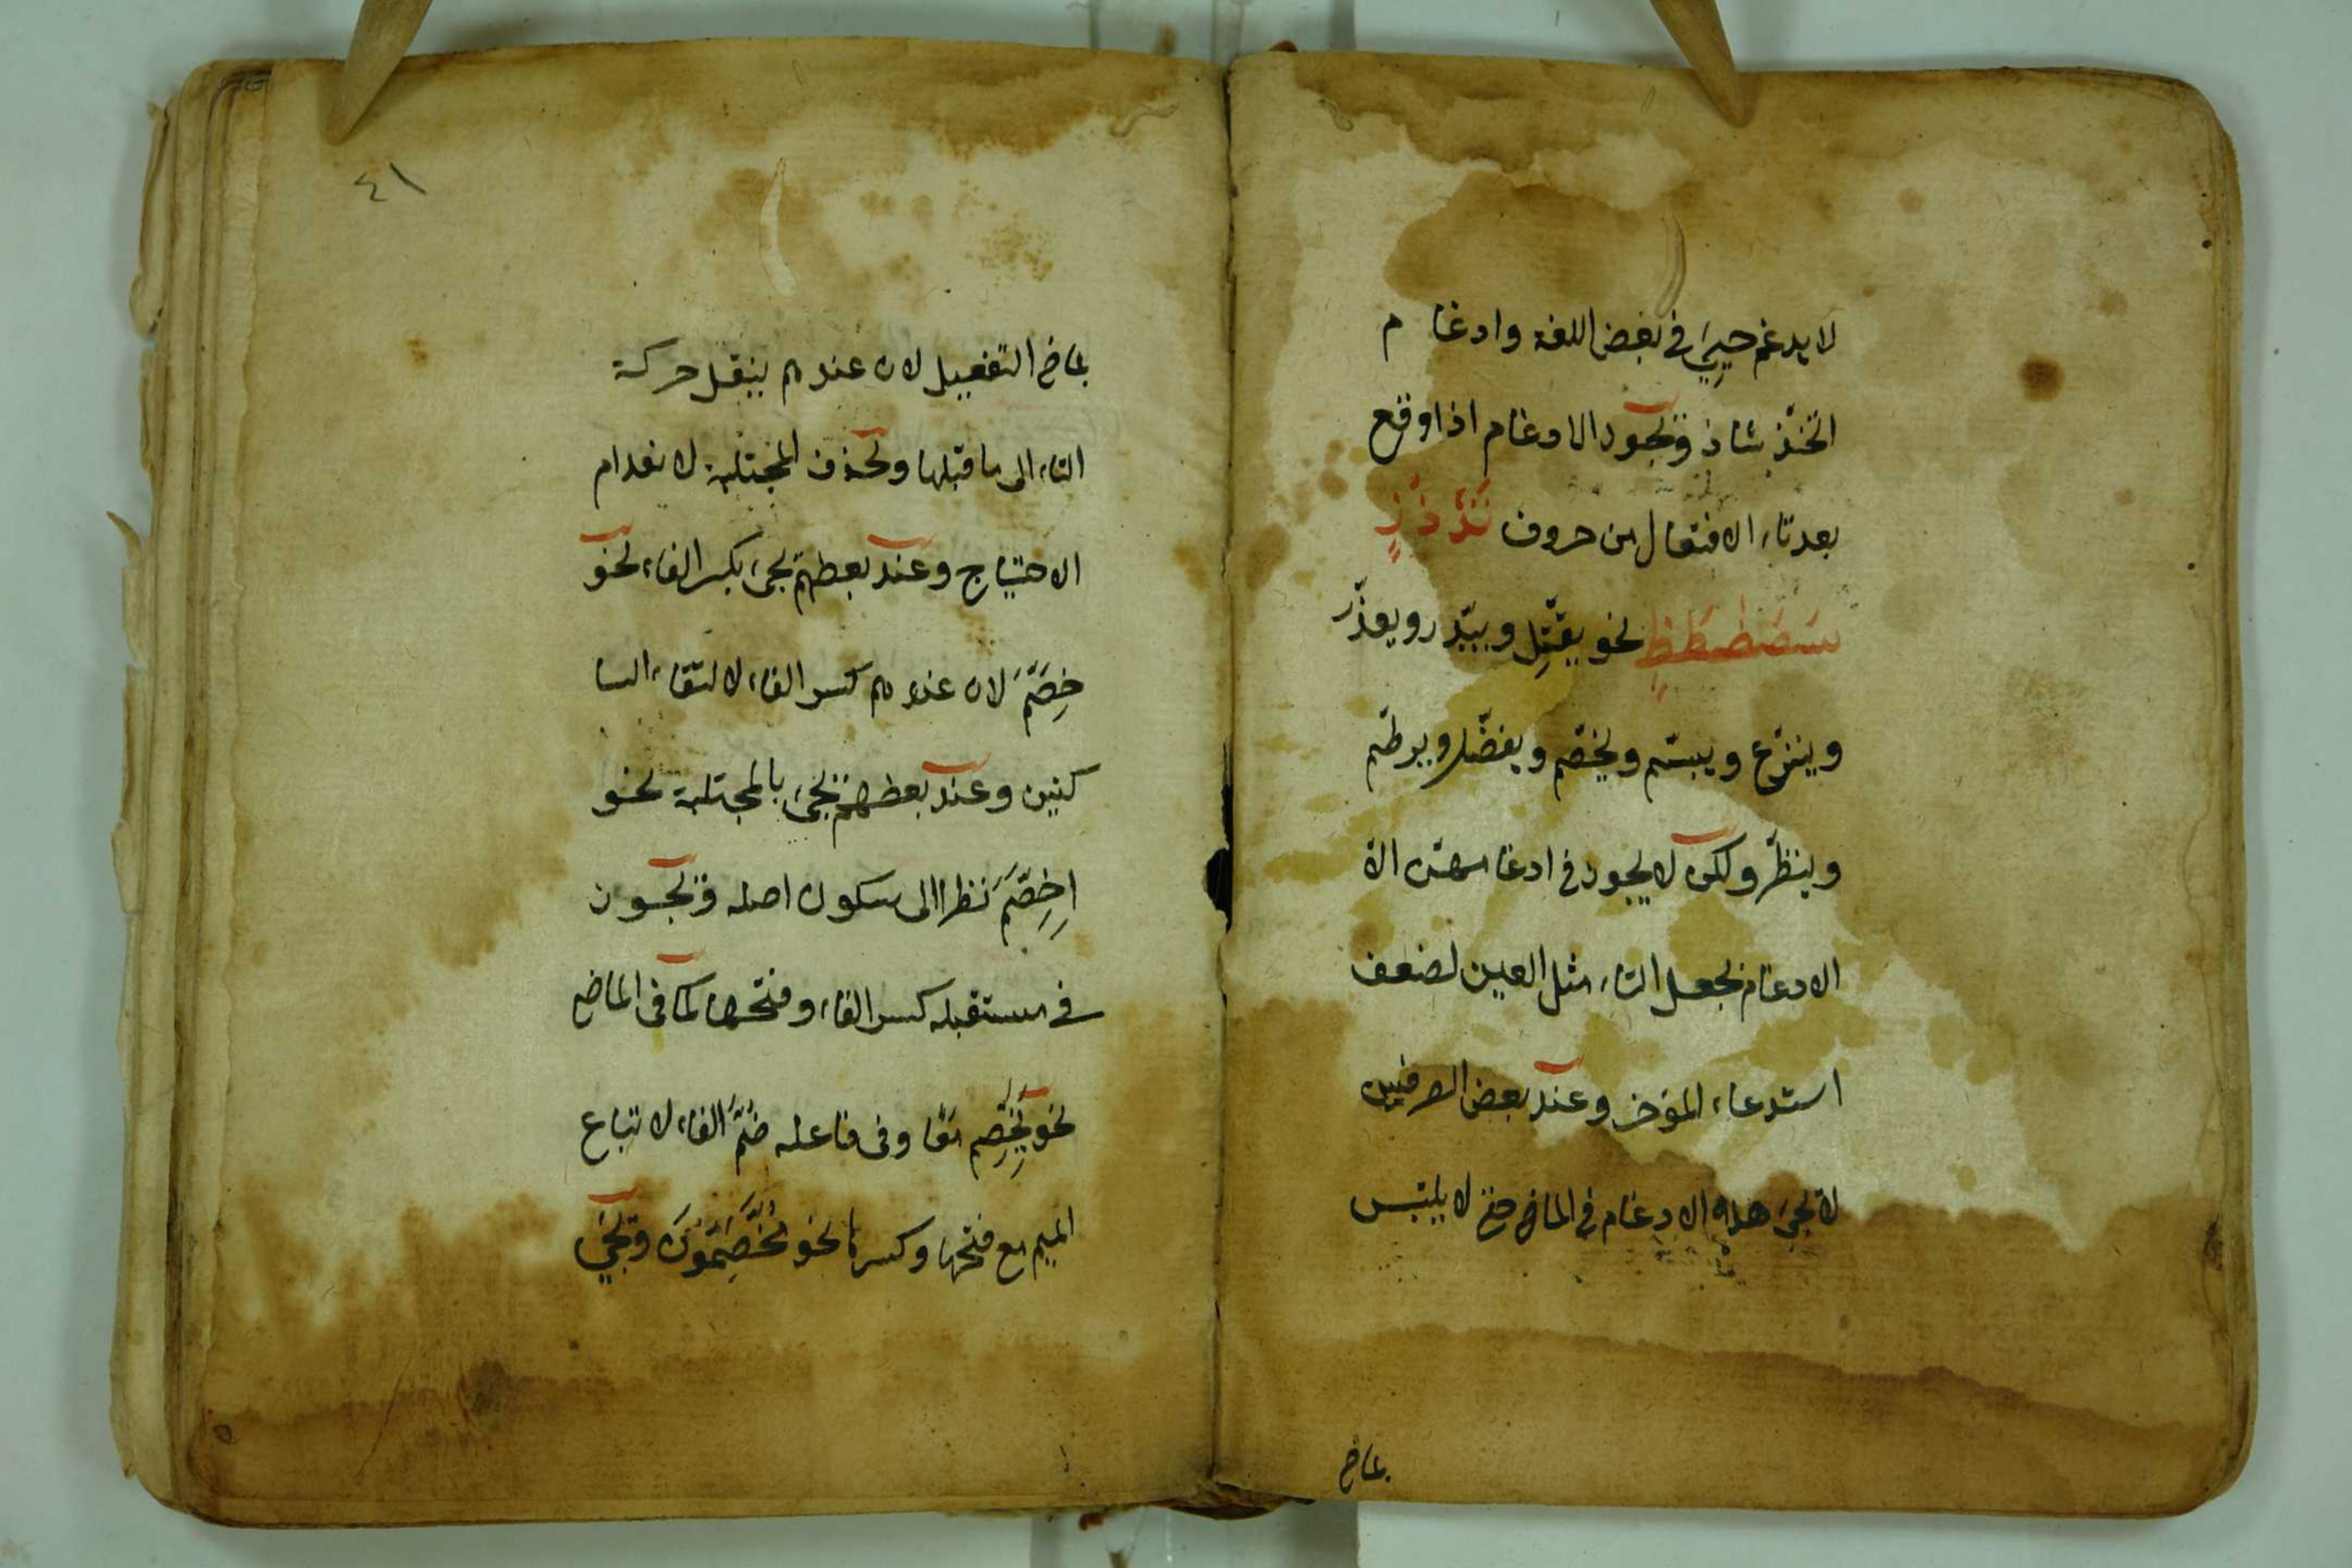 لا يدغم حيي في بعض اللغة وادغا م
اتخذ شاذ ويجوز الادغام اذا وقع
بعد تاء الافتعال من حروف تدذز
سصضطظ نحو يقتّل ويبدّر ويعذّر
وينزّع ويبسّم ويخصّم ويفضّل ويرطّم
وينظّر ولكن لا يجوز في ادغامهن الا
الادغام بجعل التاء مثل العين لضعف
استدعاء المؤخر وعند بعض الصرفيين
لا يجئ هذه الادغام في الماضي حتى لا يلتبس
بماضي
٤١
بماضي التفعيل لان عندهم ينقل حركة
التاء الى ما قبلها وتحذف المجتلبة لانعدام
الاحتياج وعند بعظهم يجئ بكسر الفاء نحو
خِصَّمَ لان عندهم كسر الفاء لالتقاء السا
كنين وعند بعظهم يجئ بالمجتلبة نحو
اِخِصَّمَ نظرا الى سكون اصله ويجوز
في مستقبله كسر الفاء وفتحها كما في الماضي
نحو يَخِصِّم وفي فاعله ضمّ الفاء لاتباع
الميم مع فتحها وكسرها نحو مُخُصِّمُونَ ويجيَ